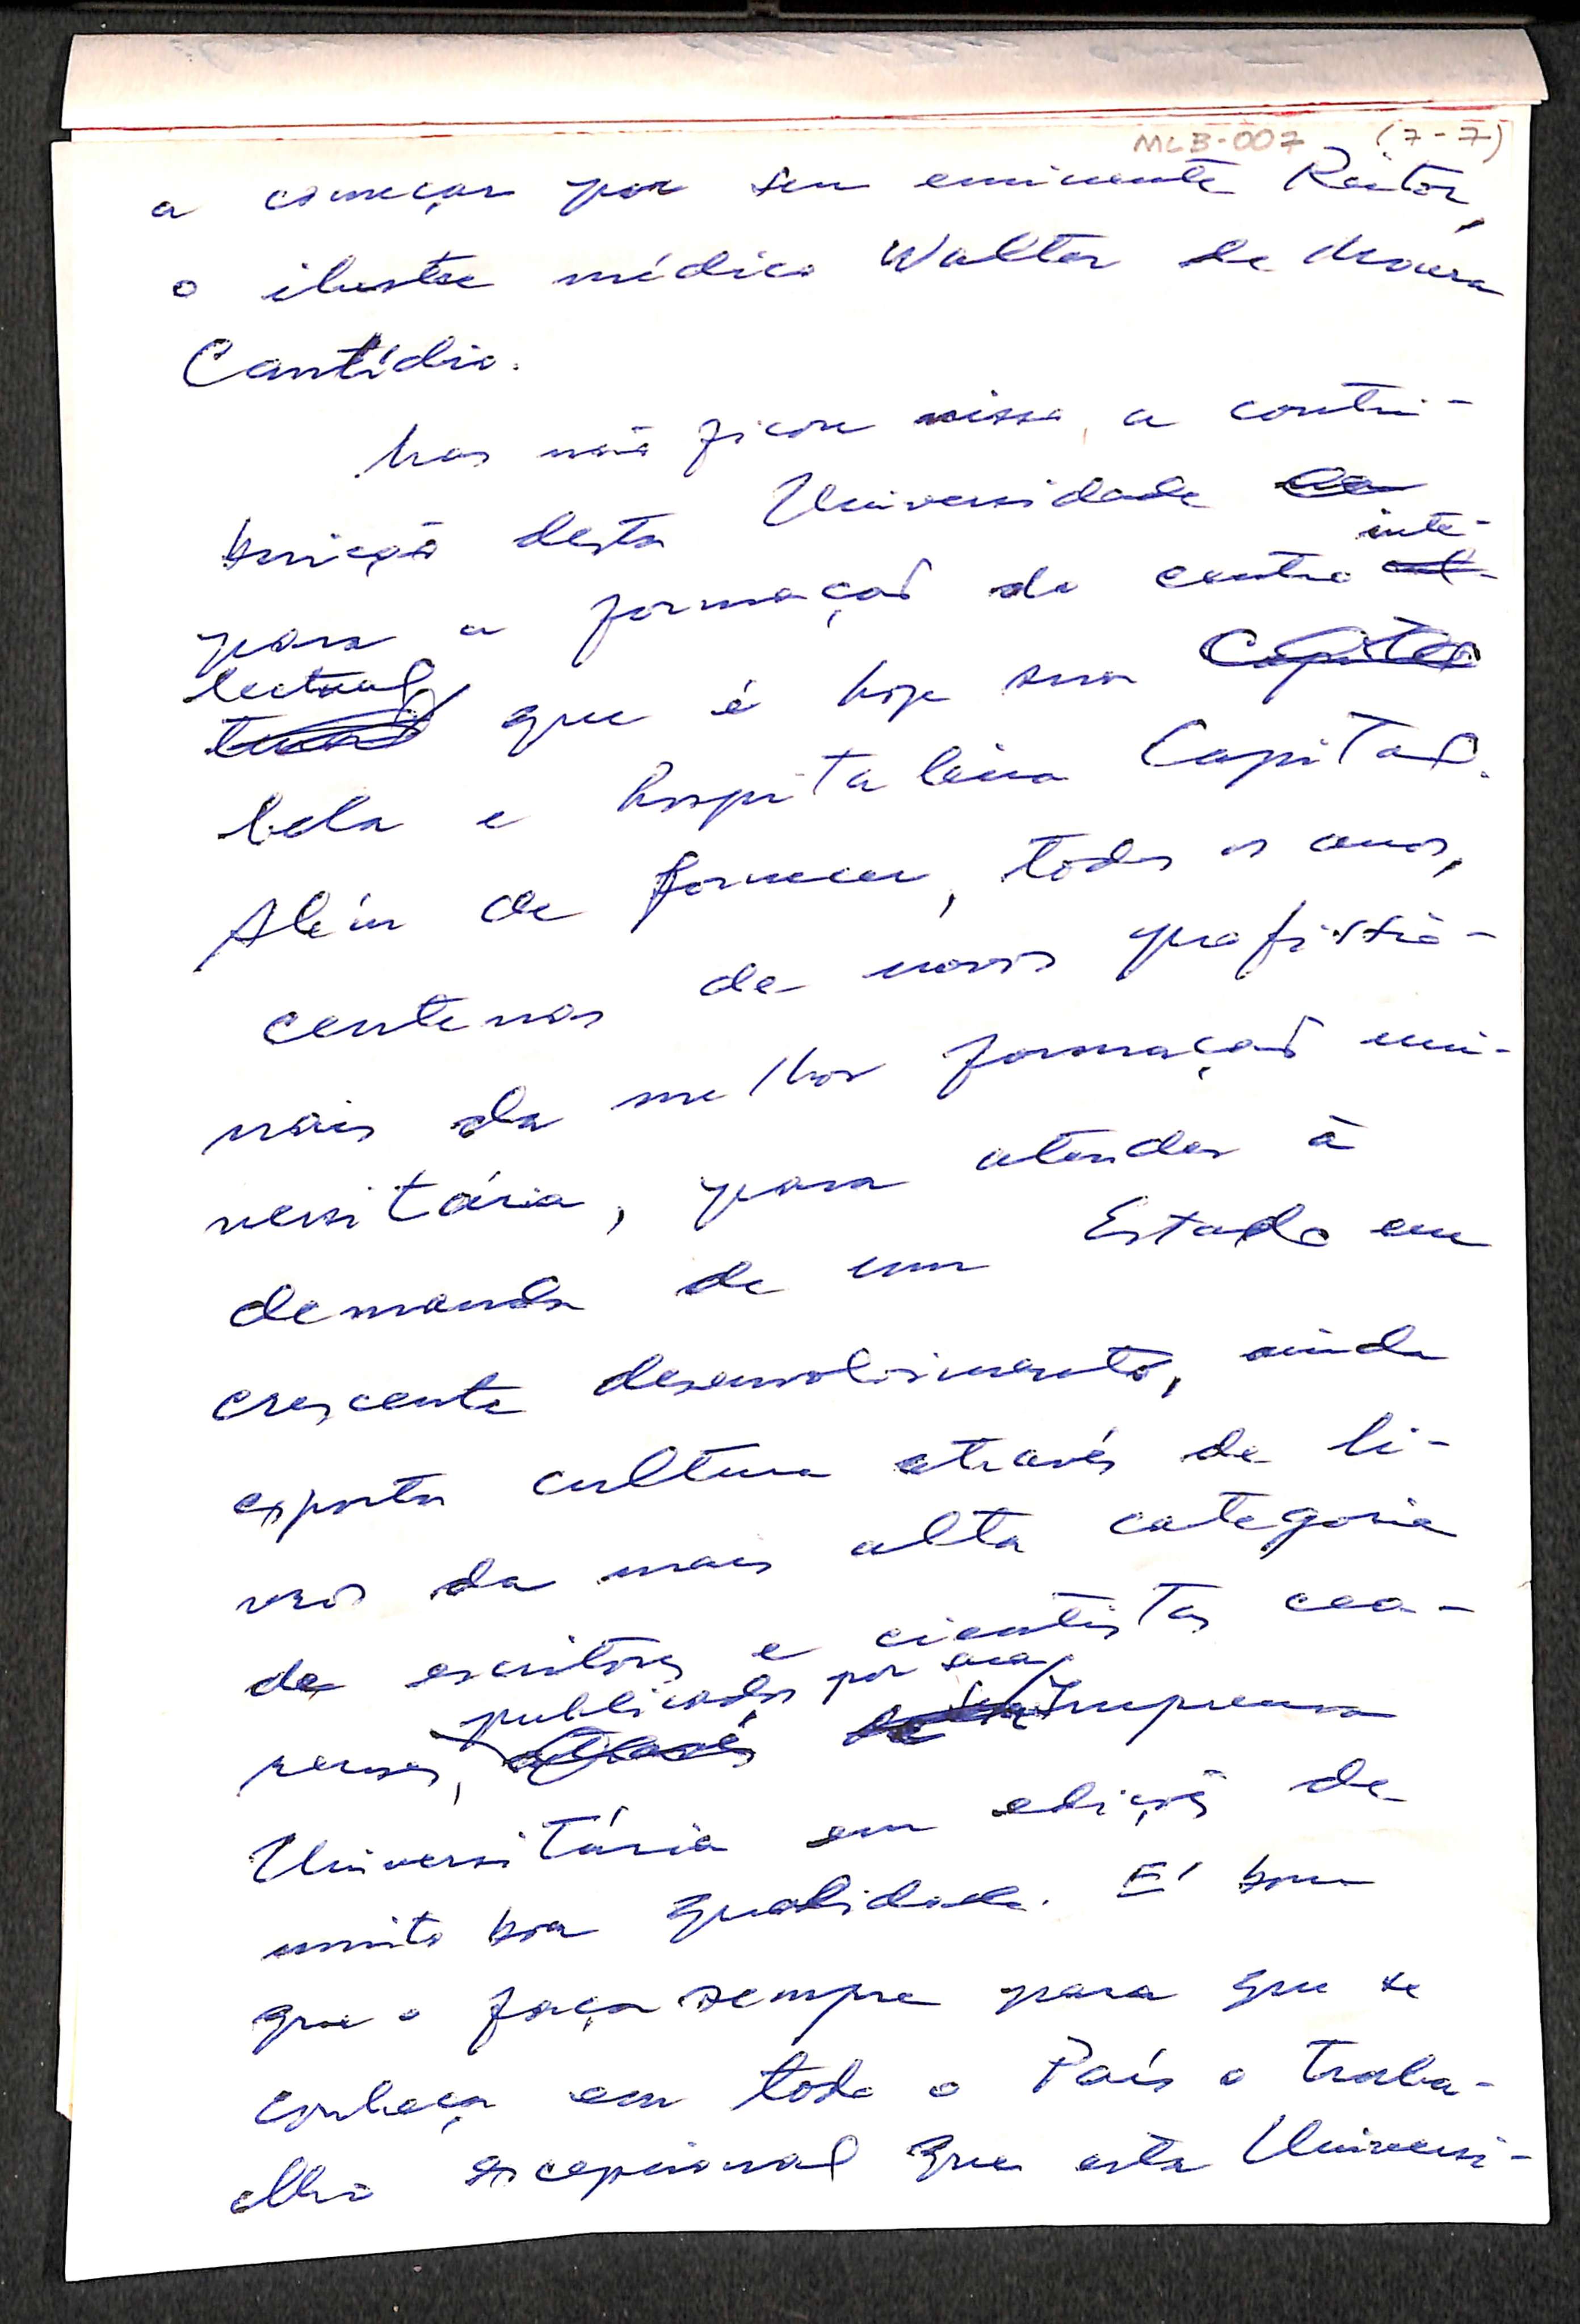 MLB-007 (7-7)
a começar por seu eminente Reitor,
o ilustre médico Walter de Moura
Cantídio.
Mas não ficou nisso, a contri-
buição desta Universidade
para a formação do centro inte-
lectual que é hoje sua
bela e hospitaleira Capital.
Além de fornecer, todos os anos,
centenas de novos profissio-
nais da melhor formação uni-
versitária, para atender à
demanda de um Estado em
crescente desenvolvimento, ainda
exporta cultura através de li-
vros da mais alta categoria
de escritores e cientistas cea-
renses, publicados por sua Imprensa
Universitária em edições de
muito boa qualidade. É bom
que o faça sempre para que se
conheça em todo o País o traba-
lho excepcional que esta Universi-